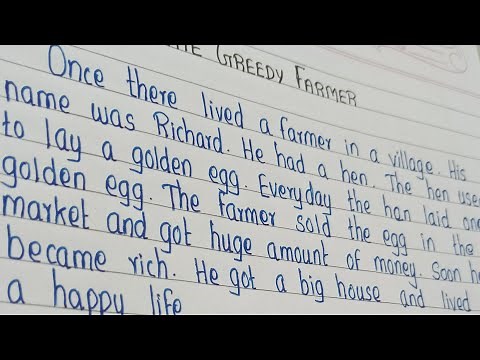 THE GREEDY FARMER
Once there lived a farmer in a village. His
name was Richard. He had a hen. The hen used
to lay a golden egg. Everyday the han laid one
golden egg. The farmer sold the egg in the
market and got huge amount of money. Soon he
became rich. He got a big house and lived
a happy life